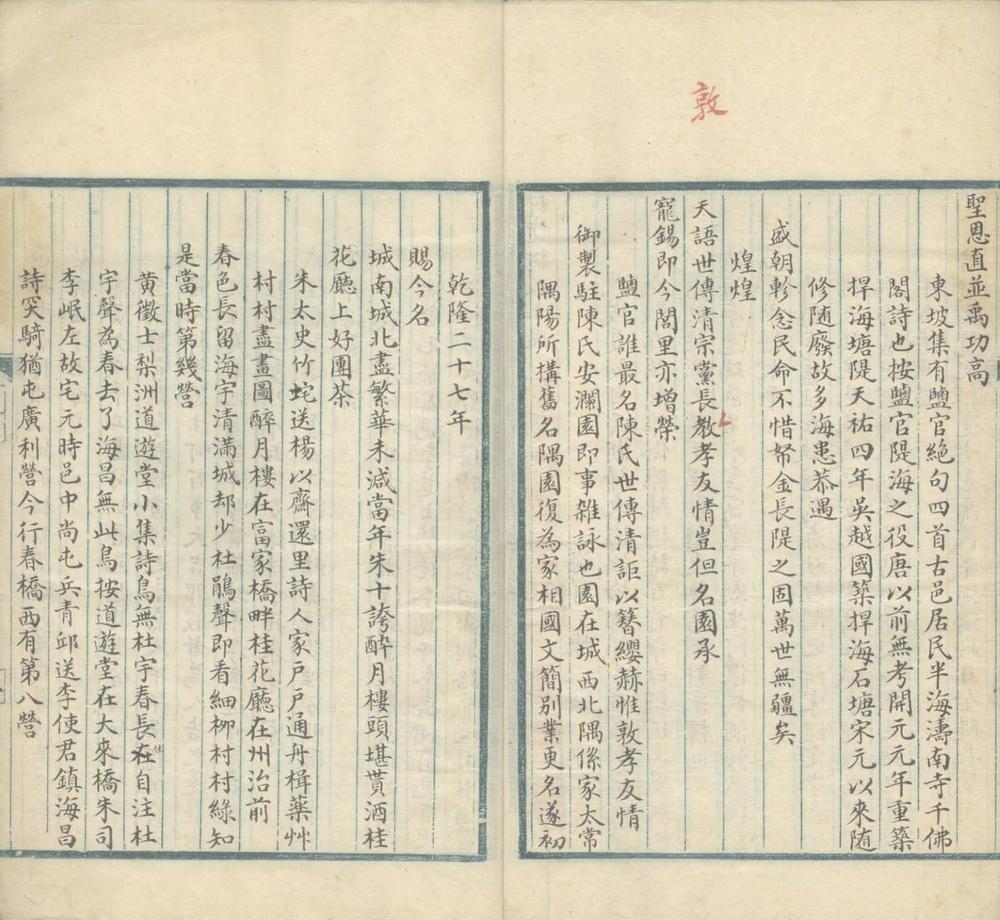 敦
聖恩直並禹功高
東坡集有鹽官絕句四首古邑居民半海濤南寺千佛
閣詩也按鹽官隄海之役唐以前無考開元元年重築
捍海塘隄天祐四年吳越國築捍海石塘宋元以來隨
修隨廢故多海患恭遇
盛朝軫念民命不惜帑金長隄之固萬世無疆矣
煌煌
天語世傳清宗黨長教孝友情豈但名園承
寵錫即今閭里亦增榮
鹽官誰最名陳氏世傳清詎以簪纓赫惟敦孝友情
御製駐陳氏安瀾園即事雜詠也園在城西北隅係家太常
隅陽所搆舊名隅園復為家相國文簡別業更名遂初
乾隆二十七年
賜今名
城南城北盡繁華未減當年朱十誇醉月樓頭堪貰酒桂
花廳上好團茶
朱太史竹垞送楊以齋還里詩人家戶戶通舟楫藥艸
村村畫畫圖醉月樓在富家橋畔桂花廳在州治前
春色長留海宇清滿城却少杜鵑聲即看細柳村村綠知
是當時第幾營
黄徵士梨洲道遊堂小集詩鳥無杜宇春長在住自注杜
宇聲為春去了海昌無此鳥按道遊堂在大來橋朱司
李岷左故宅元時邑中尚屯兵青邱送李使君鎮海昌
詩突騎猶屯廣利營今行春橋西有第八營